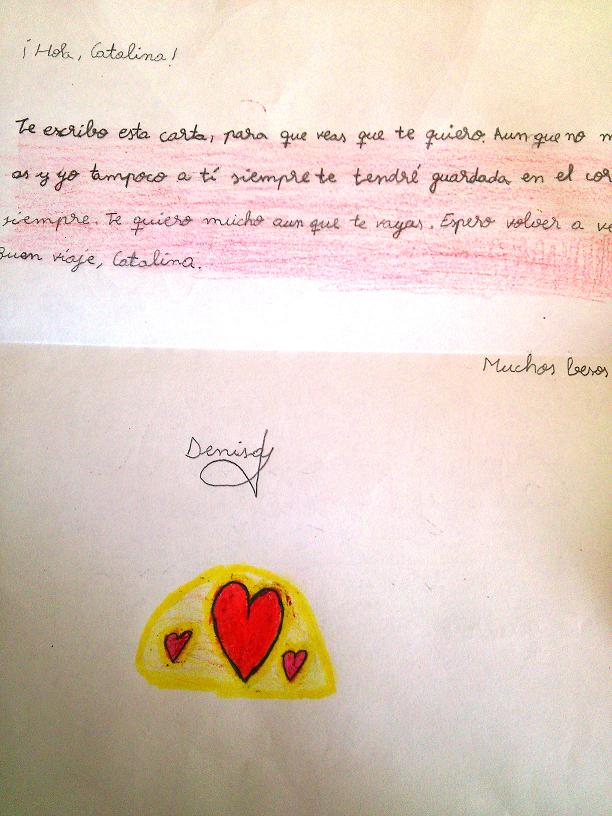 ¡Hola, Catalina!
Te escribo esta carta, para que veas que te quiero. Aunque no m
as y yo tampoco a tí siempre te tendré guardada en el cor
siempre. Te quiero mucho aun que te vayas. Espero volver a ve
Buen viaje, Catalina.
Muchos besos
Denisa